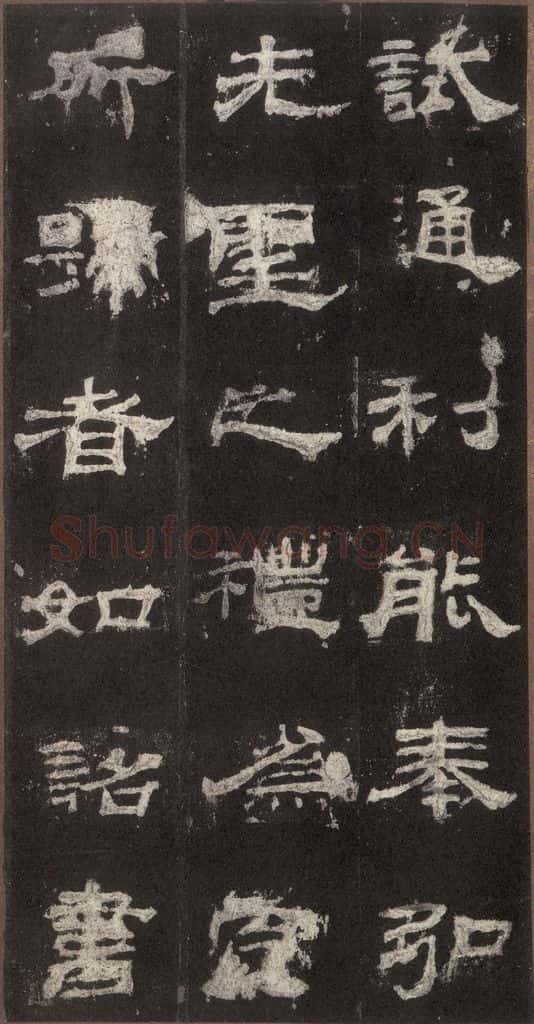 試通利能奉弘
先聖之禮為宗
所歸者如詔書
Shufawang.CN